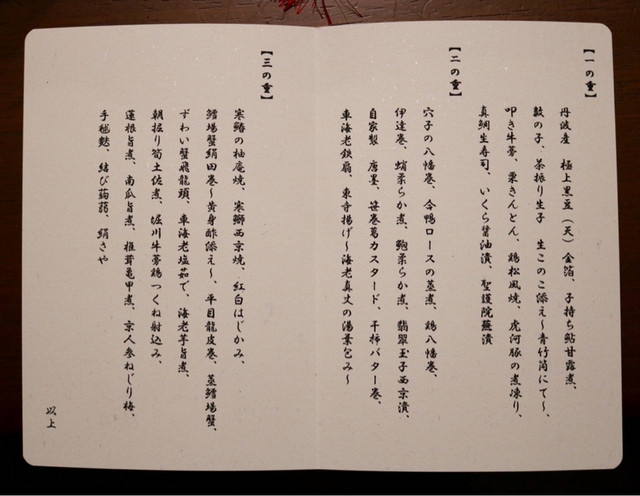 【一の重】
丹波産 極上黒豆（天）金箔、子持ち鮎甘露煮、
数の子、茶振り生子 生このこ添え〜青竹筒にて〜、
叩き牛蒡、栗きんとん、鶏松風焼、虎河豚の煮凍り、
真鯛生寿司、いくら醤油漬、聖護院蕪漬
【二の重】
穴子の八幡巻、合鴨ロースの蒸煮、鶏八幡巻、
伊達巻、蛸柔らか煮、鮑柔らか煮、翡翠玉子西京漬、
自家製 唐墨、笹巻葛カスタード、干柿バター巻、
車海老鉄扇、東寺揚げ〜海老真丈の湯葉包み〜
【三の重】
寒鰆の柚庵焼、寒鰤西京焼、紅白はじかみ、
鱈場蟹絹田巻〜黄身酢添え〜、平目龍皮巻、蒸鱈場蟹、
ずわい蟹飛龍頭、車海老塩茹で、海老芋旨煮、
朝掘り筍土佐煮、堀川牛蒡鶏つくね射込み、
蓮根旨煮、南瓜旨煮、椎茸亀甲煮、京人参ねじり梅、
手毬麩、結び蒟蒻、絹さや
以上